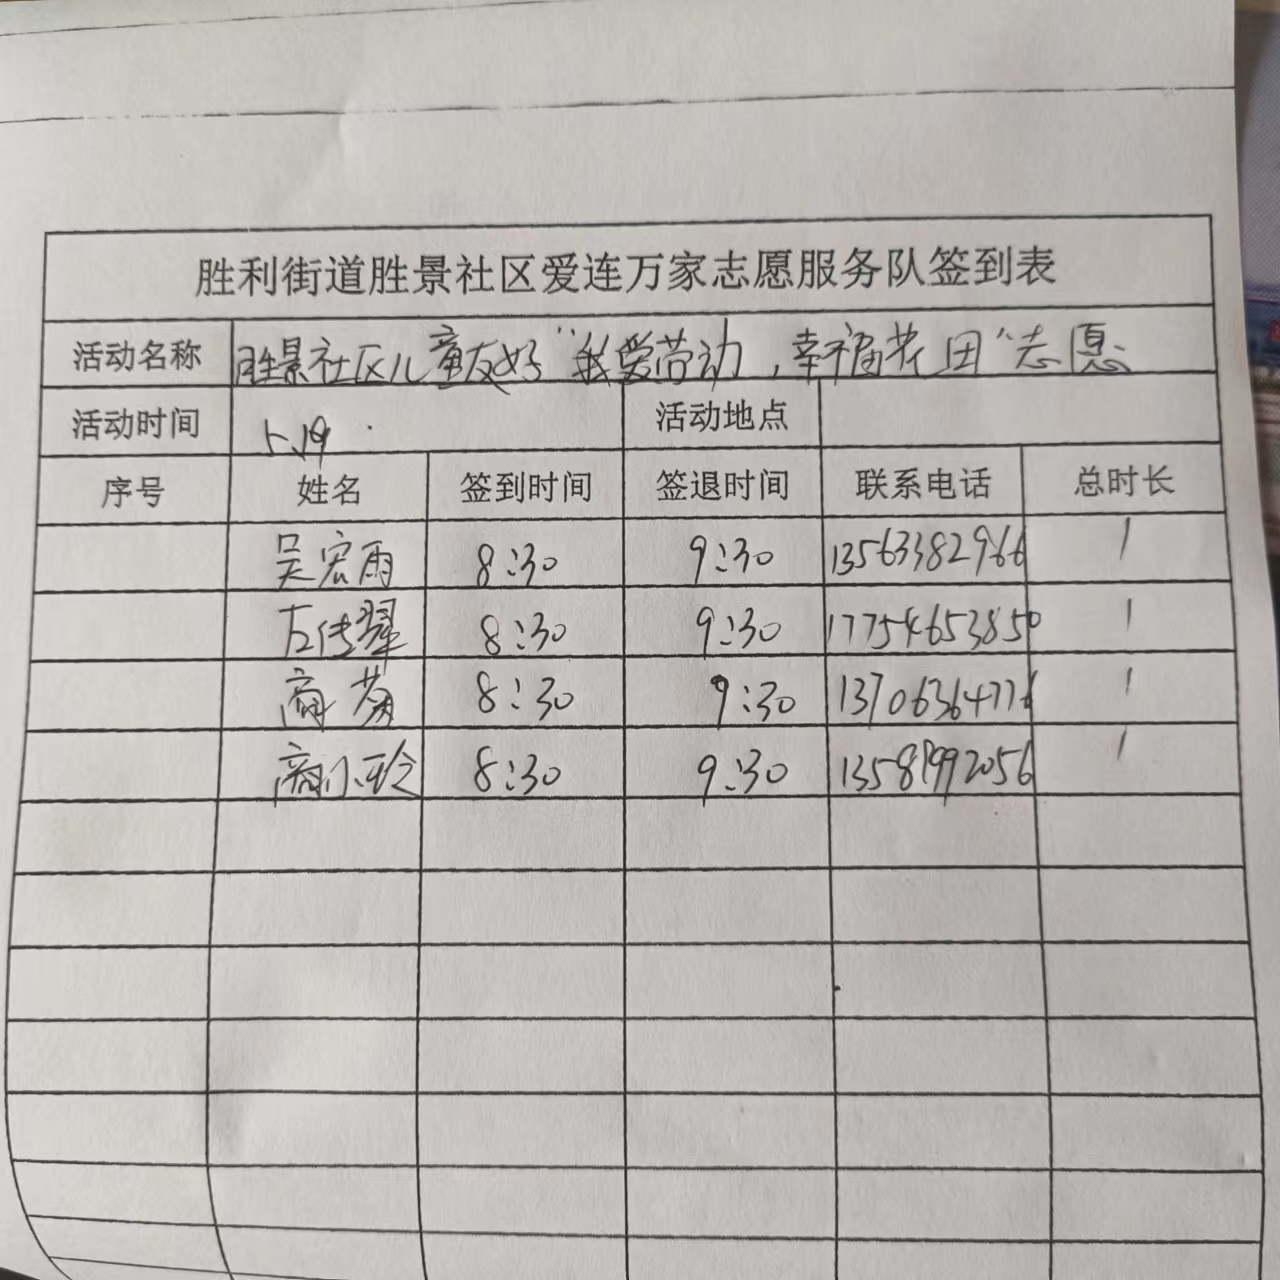 胜利街道胜景社区爱连万家志愿服务队签到表
活动名称 胜景社区儿童友好“我爱劳动，幸福花田”志愿
活动时间 5.19 活动地点
序号 姓名 签到时间 签退时间 联系电话 总时长
吴宏雨 8:30 9:30 13563382966 1
左传翠 8:30 9:30 17754653850 1
商 8:30 9:30 13706364776 1
商小玲 8:30 9:30 13581992056 1